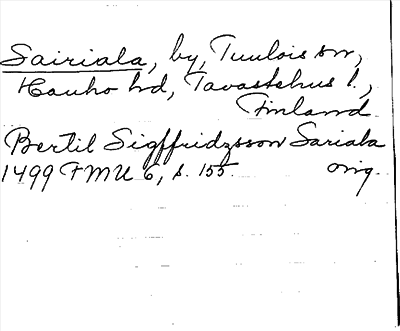 Sairiala, by, Tuulois sn,
Hauho hd, Tavastehus l.,
Finland.
Bertil Sigffridzsson Sariala
1499 FMU 6, s. 155. orig.